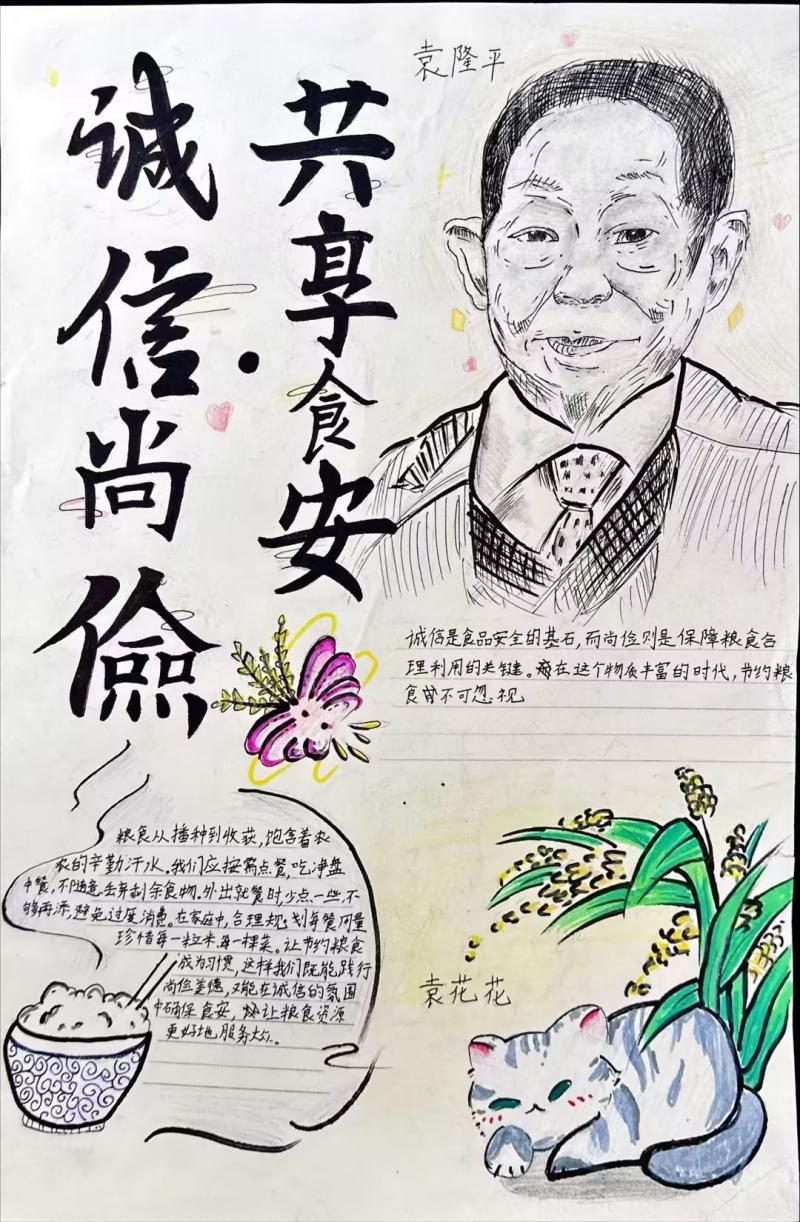 诚信尚儉·
共享食安
袁隆平
诚信是食品安全的基石,而尚俭则是保障粮食合
理利用的关键。在这个物质丰富的时代,节约粮
食不可忽视
粮食从播种到收获,饱含着农
农的辛勤汗水。我们应按需点餐,吃净盘
中餐,不随意丢弃剩余食物。外出就餐时少点一些,不
够再添,避免过度消费。在家庭中,合理规划每餐用量
珍惜每一粒米,每一棵菜。让节约粮食
成为习惯,这样我们既能践行
尚俭美德,又能在诚信的氛围
中确保食安,让粮食资源
更好地服务大众。
袁花花